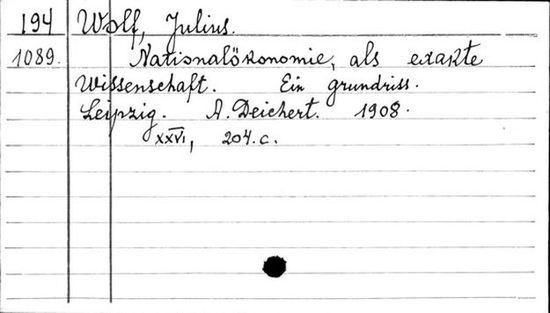 194 Wolf, Julius.
1089. Nationalökonomie, als exakte
Wissenschaft. Ein grundriss.
Leipzig. A. Deichert. 1908.
XXVI, 204.c.